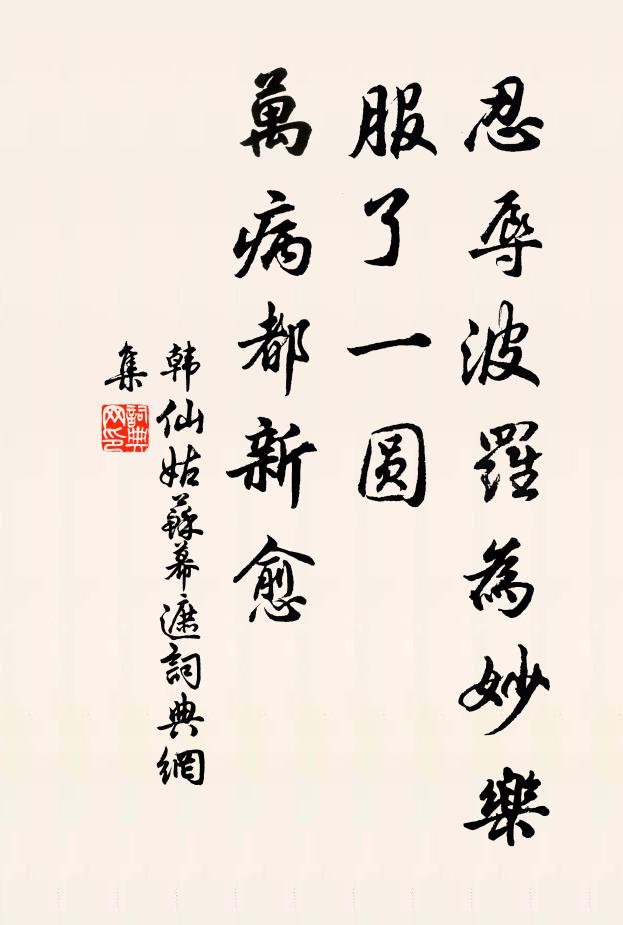 忍辱波羅為妙樂
服了一圆
萬病都新愈
韩仙姑蘇幕遮詞典網
集
詞典
网印